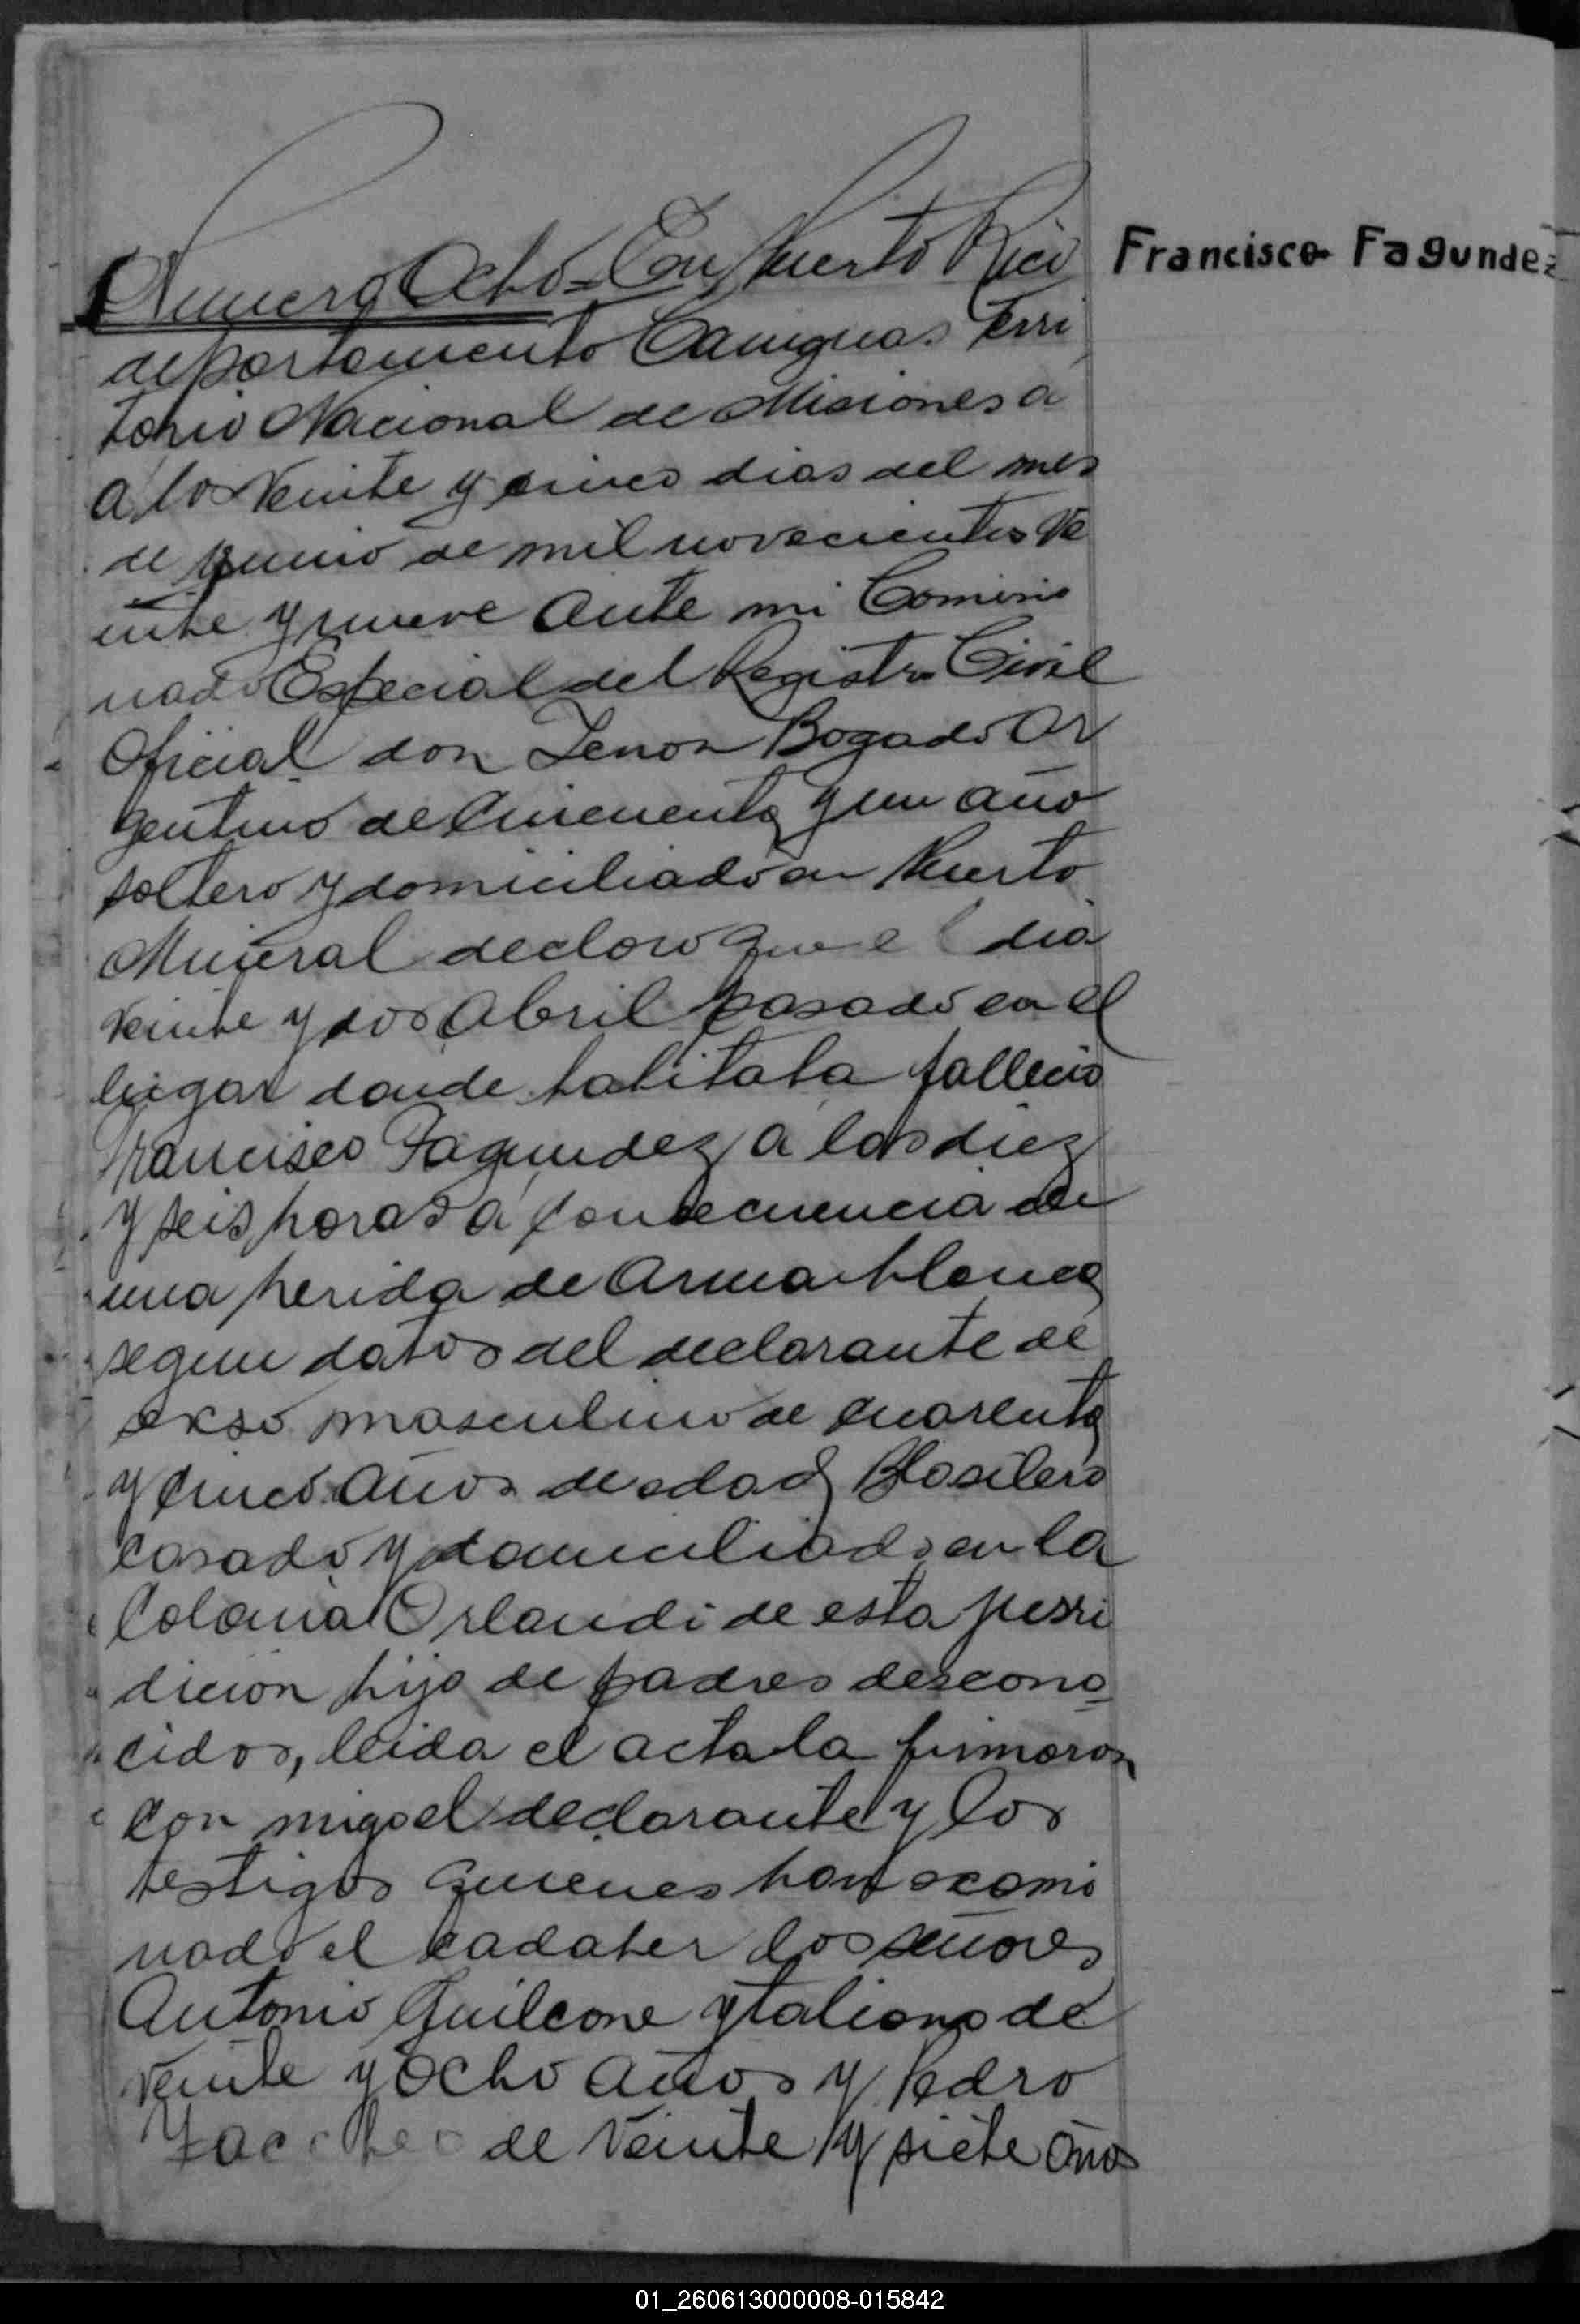 Numero Ocho = En Puerto Rico
Francisco Fagundez
departamento Cainguas Terri
torio Nacional de Misiones a
a los Veinte y cinco dias del mes
de Junio de mil novecientos Ve
inte y nueve Ante mi Comisio
nado Especial del Registro Civil
Oficial don Zenon Bogado Ar
gentino de Cincuenta y un año
soltero y domiciliado en Puerto
Mineral declaro que el dia
veinte y dos Abril pasado en el
lugar donde habitaba fallecio
Francisco Fagundez a las diez
y seis horas a consecuencia de
una herida de Arma blanca
segun datos del declarante de
sexso masculino de cuarenta
y cinco años de edad Blasilero
casado y domiciliado en la
Colonia Orlandi de esta jurri
dicion hijo de padres descono
cidos, leida el acta la firmaron
con migo el declarante y los
testigos quienes han exami
nado el cadaber los señores
Antonio Guilcone ytaliano de
veinte y ocho años y Pedro
de veinte y siete años
01_260613000008-015842